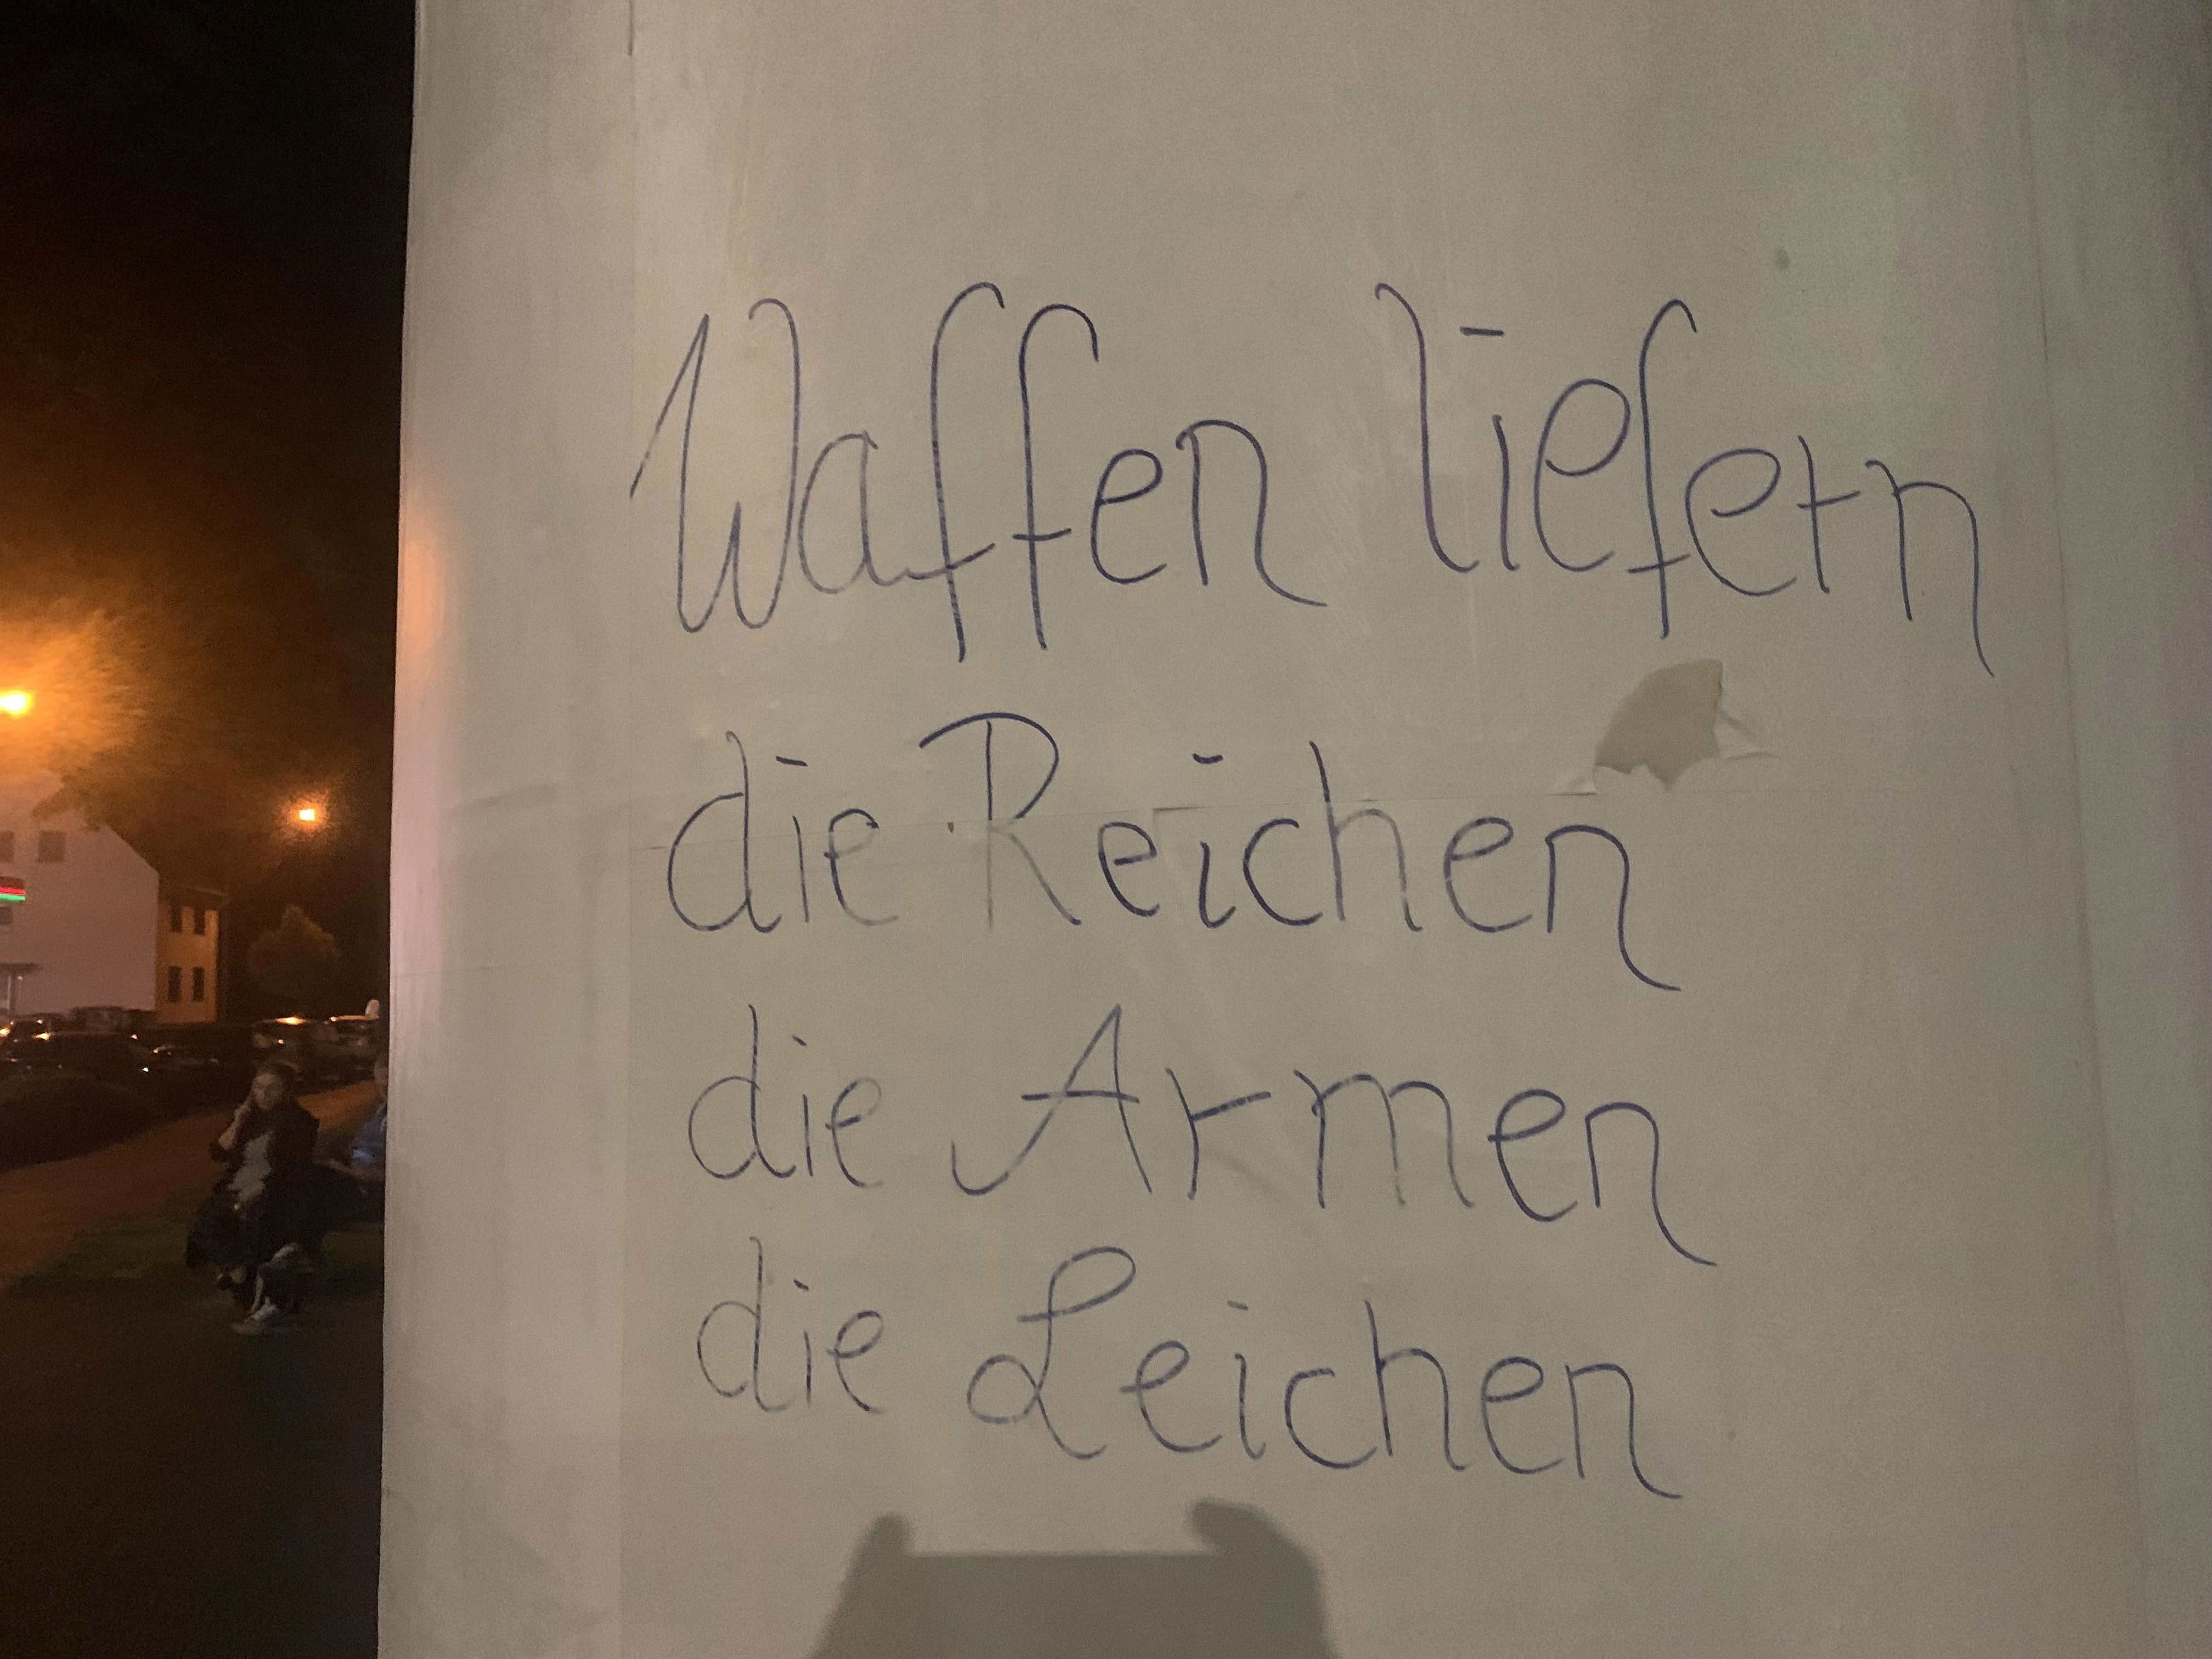 Waffen liefern
die Reichen
die Armen
die Leichen